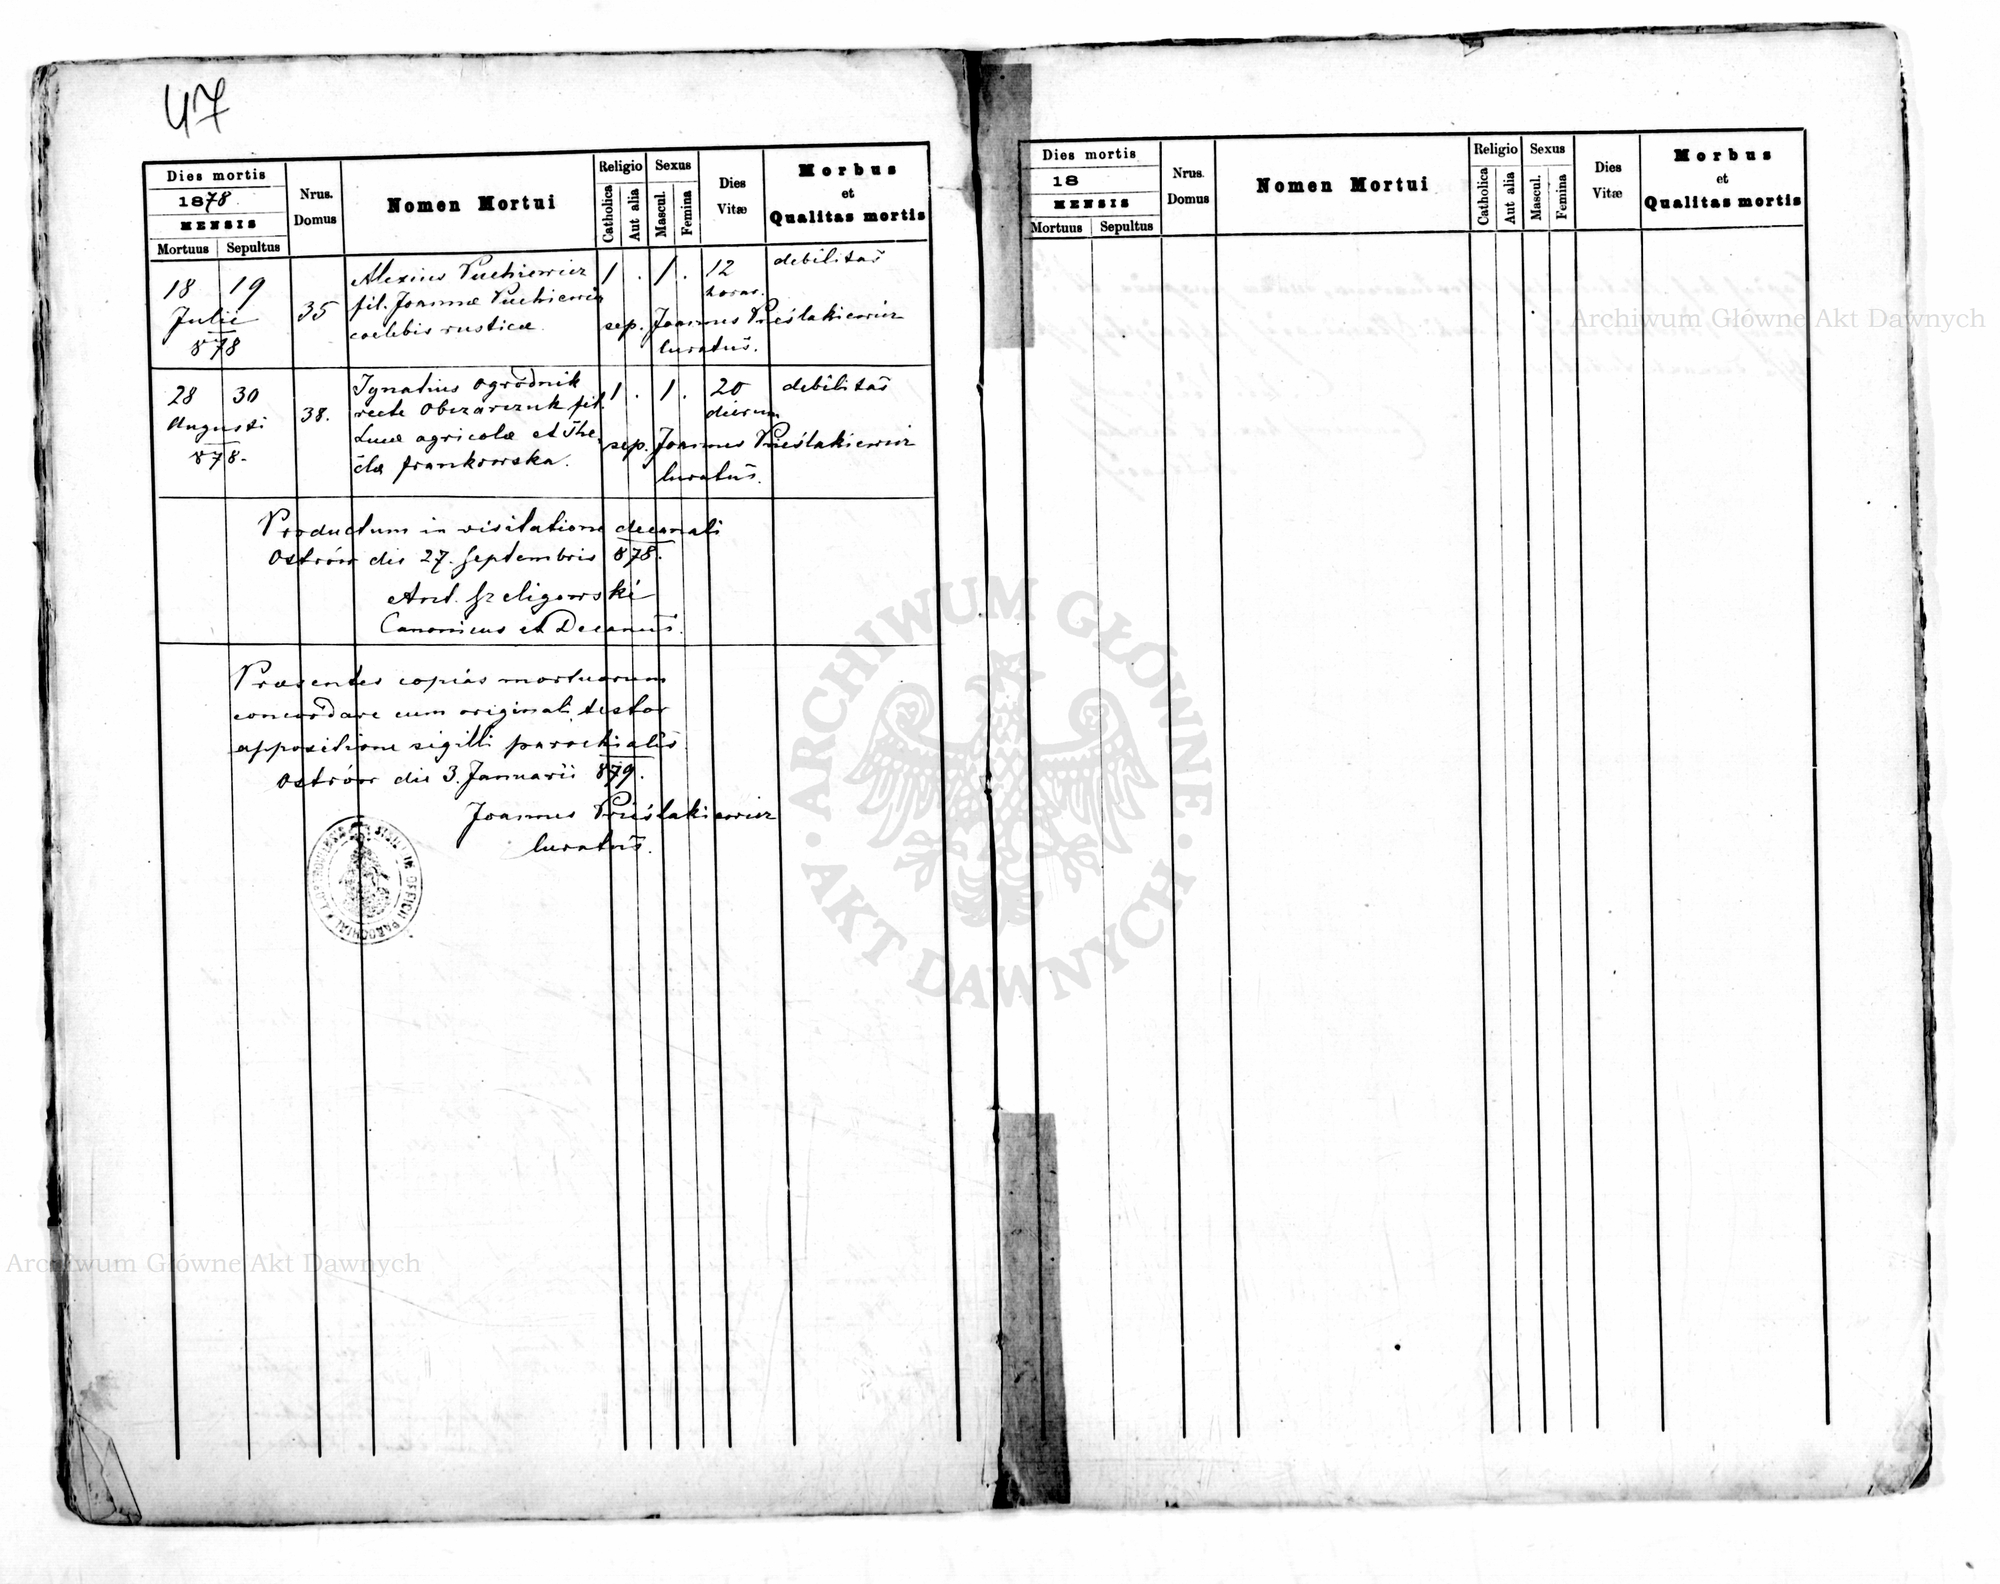 47
Dies mortis
1878.
MENSIS
Mortuus Sepultus
Nrus. Domus
Nomen Mortui
Religio
Catholica
Aut alia
Sexus
Mascul.
Femina
Dies Vitæ
Morbus
et
Qualitas mortis
18 19
Julii
878
35
Alexius Puchiewicz
fil. Joannæ Puchiewicz
coelebis rusticæ
1 . 1 .
12
horas.
debilitas
sep. Joannes Prieślakiewicz
Curatus.
28 30
Augusti
878.
38.
Ignatius Ogrodnik
recte Obczarczuk fil.
Lucæ agricolæ et The-
clæ Frankowska.
1 . 1 .
20
dierum
debilitas
sep. Joannes Prieślakiewicz
Curatus.
Productum in visitatione decanali
Ostrów die 27. Septembris 878.
Ant. Szeligowski
Canonicus et Decanus.
Præsentes copias mortuorum
concordare cum originali testor
appositione sigilli parochialis.
Ostrów die 3. Januarii 879.
Joannes Prieślakiewicz
Curatus.
Dies mortis
18
MENSIS
Mortuus Sepultus
Nrus. Domus
Nomen Mortui
Religio
Catholica
Aut alia
Sexus
Mascul.
Femina
Dies Vitæ
Morbus
et
Qualitas mortis
Archiwum Główne Akt Dawnych
ARCHIWUM GŁÓWNE · AKT DAWNYCH ·
Archiwum Główne Akt Dawnych